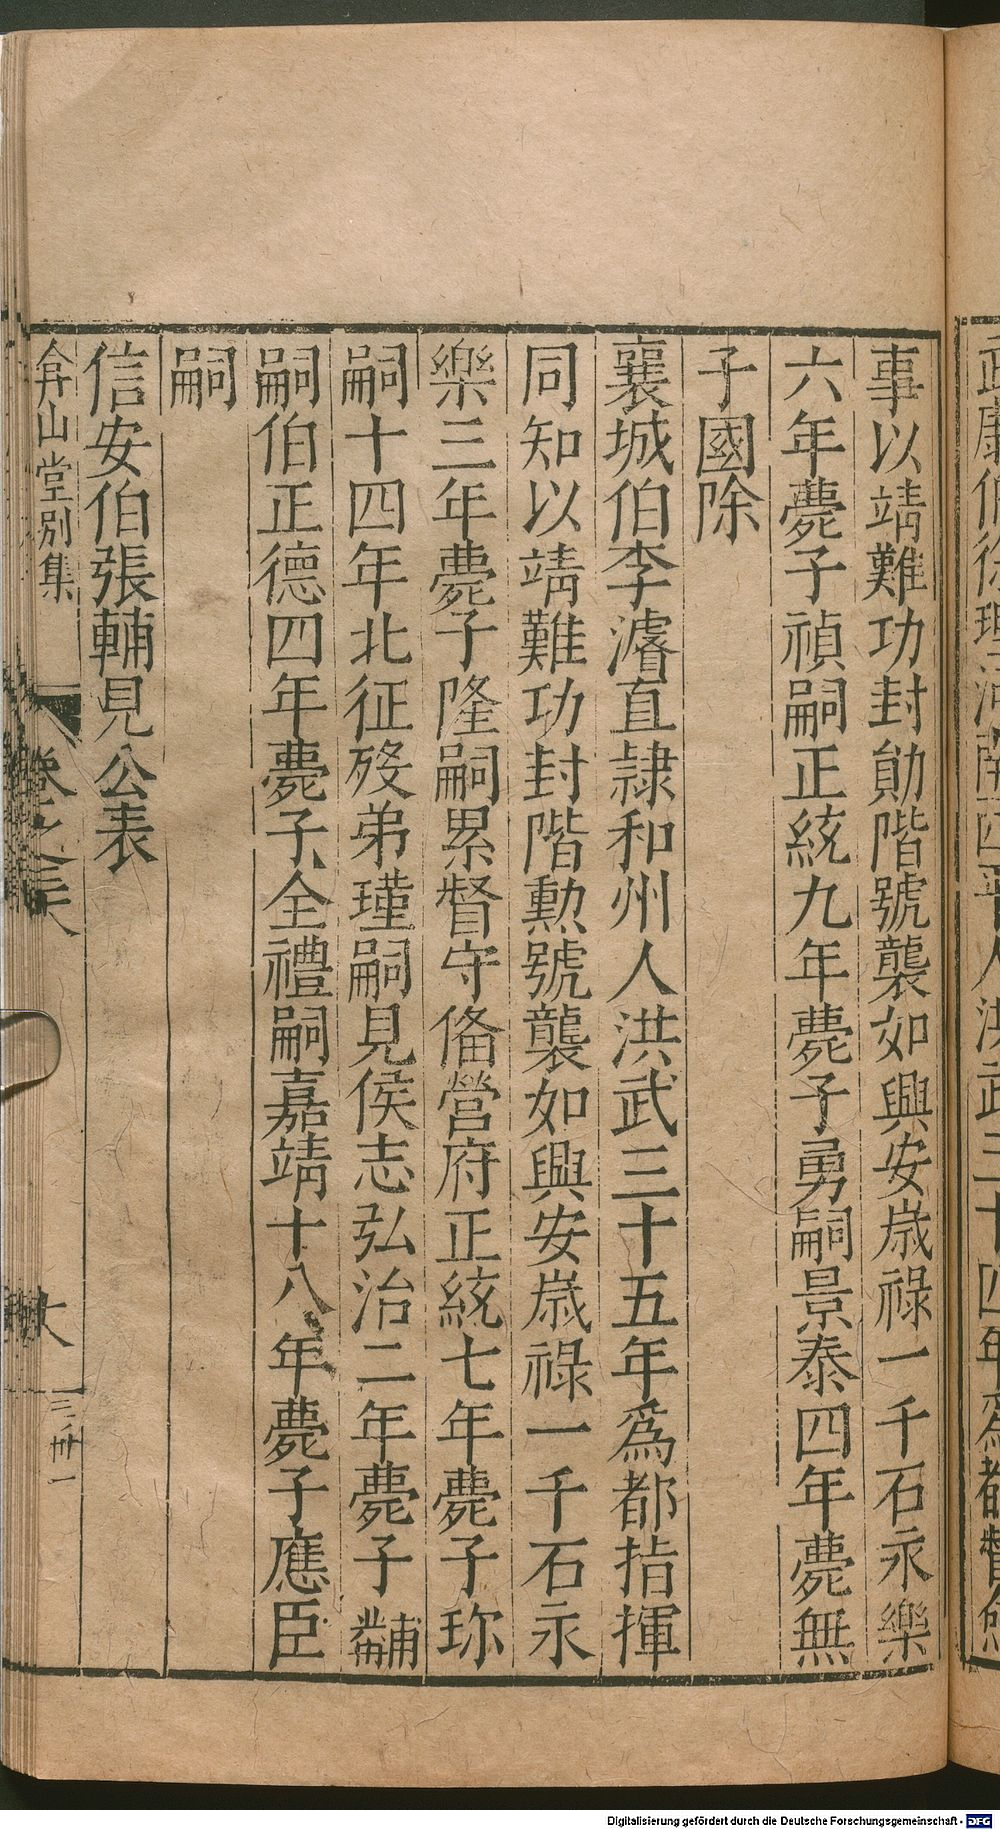 事以靖難功封勛階號襲如興安歲祿一千石永樂
六年薨子禎嗣正統九年薨子勇嗣景泰四年薨無
子國除
襄城伯李濬直隷和州人洪武三十五年為都指揮
同知以靖難功封階勲號襲如興安歲祿一千石永
樂三年薨子隆嗣累督守俻營府正統七年薨子珎
嗣十四年北征歿弟瑾嗣見侯志弘治二年薨子黼
嗣伯正德四年薨子全禮嗣嘉靖十八年薨子應臣
嗣
信安伯張輔見公表
弇山堂別集
Digitalisierung gefördert durch die Deutsche Forschungsgemeinschaft - DFG